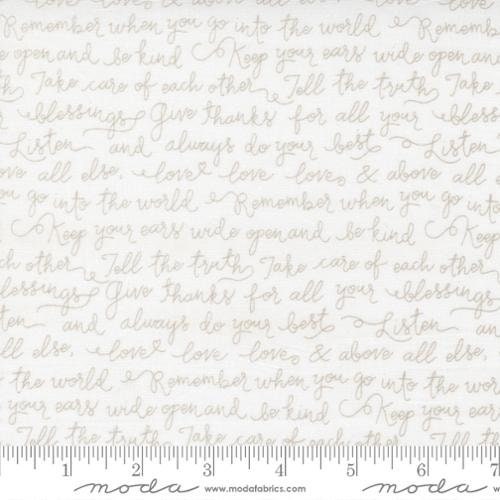 Remember when you go into the world Remember
e open and be kind Keep your ears wide open and
th Take care of each other Tell the truth Take
r blessings Give thanks for all your blessi
Listen and always do your best Listen
ove all else, love love love, & above all
ou go into the world Remember when you go into
Keep your ears wide open and be kind Keep
ch other Tell the truth Take care of each other
lessings Give thanks for all your blessings
ten and always do your best Listen and
ll else, love love love, & above all else,
the world Remember when you go into the wor
your ears wide open and be kind Keep your ears
Tell the truth Take care of each other Tell th
1 2 3 4 5 6 7
moda www.modafabrics.com moda